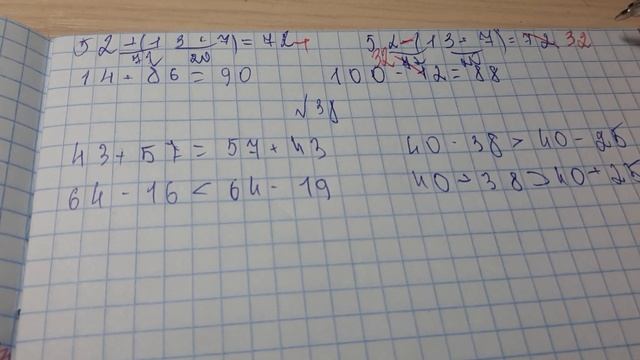 52+(13+7)=72+ 52-(13+7)=72 32
72 20 32
14+86=90 100-12=88
№38
43+57=57+43 40-38>40-25
64-16<64-19 40+38>40+25